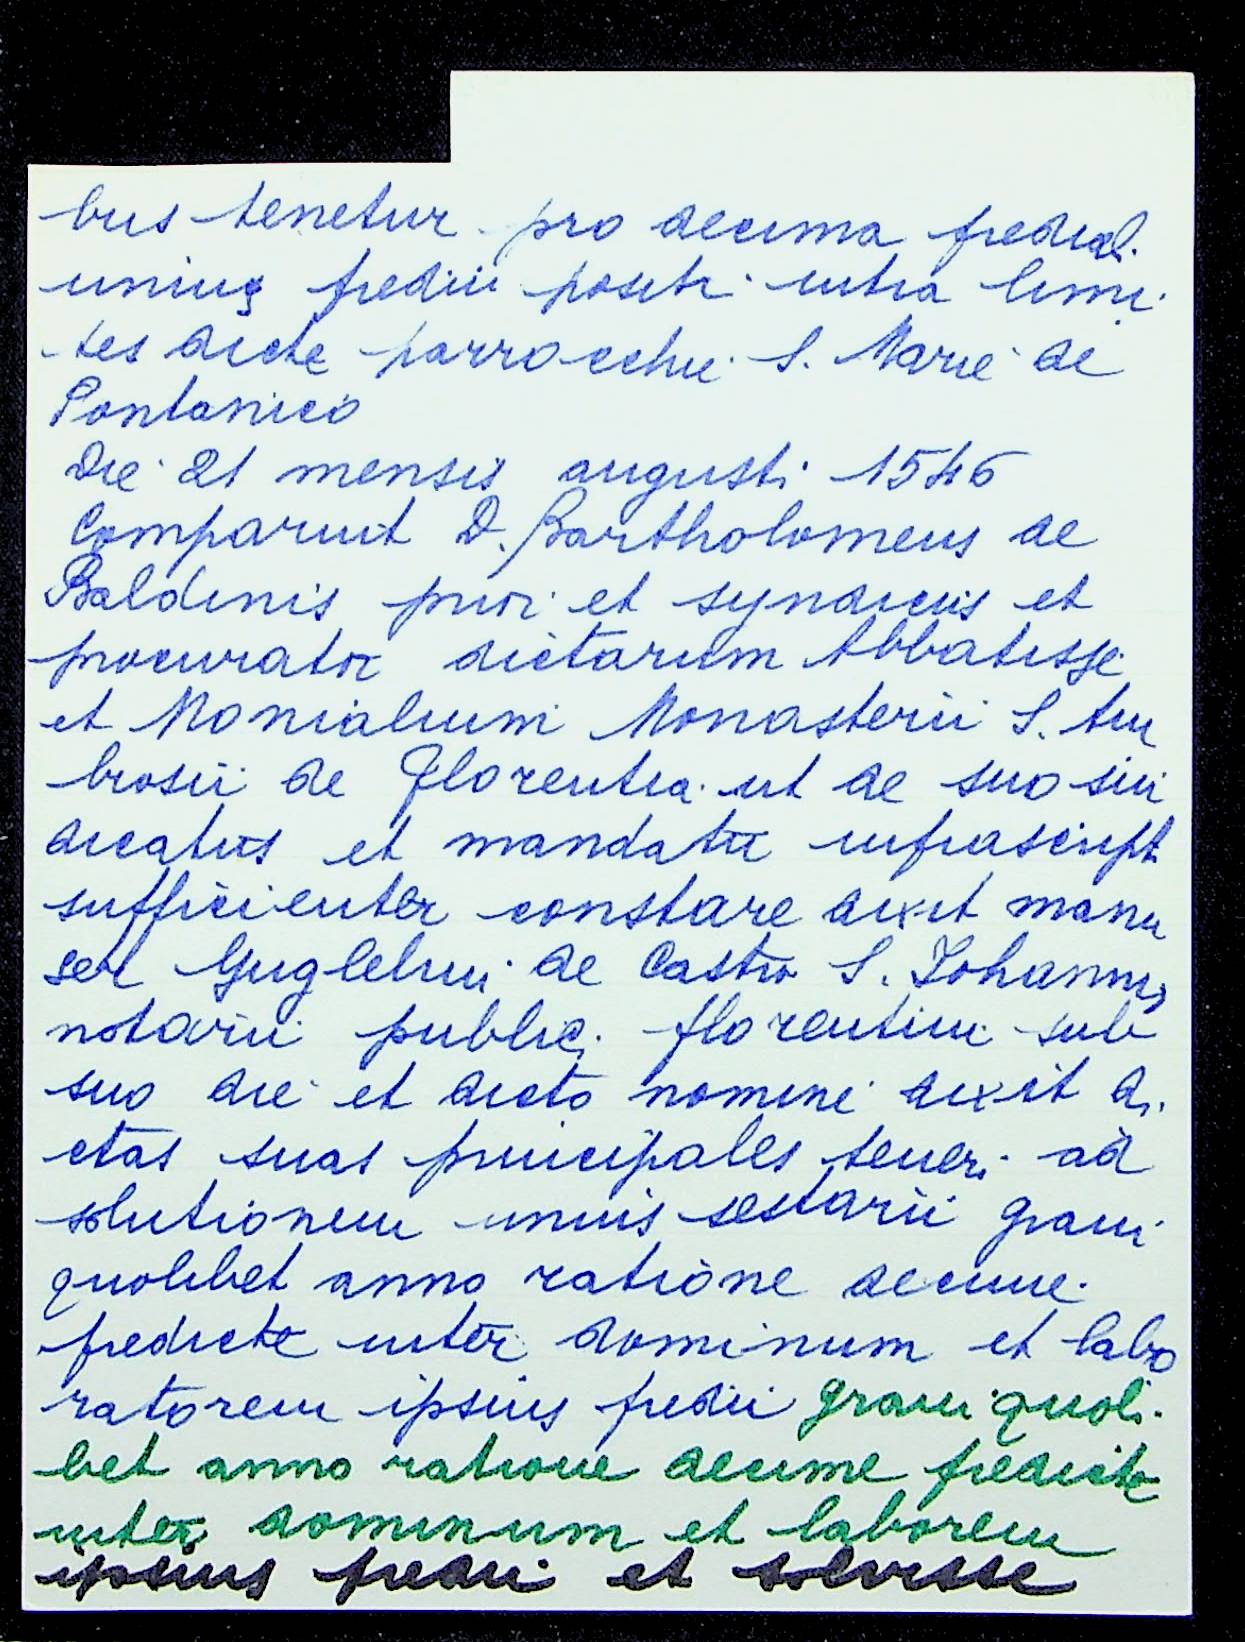 bus tenetur pro decima predial.
unius predii positi intra limi
tes dicte parrocchie S. Marie de
Pontanico
Die 21 mensis augusti 1546
Comparuit D. Bartholomeus de
Baldinis prior et syndicus et
procurator dictarum Abbatisse
et Monialium Monasterii S. Am
brosii de Florentia ut de suo sin
dicatus et mandatu infrascript
sufficienter constare dixit manu
ser Guglelmi de Castro S. Iohannis
notarii public. florentini sub
suo die et dicto nomine dixit di
ctas suas principales teneri ad
solutionem unius sestarii grani
quolibet anno ratione decime
predicte inter dominum et labo
ratorem ipsius predii grani quoli
bet anno ratione decime predicte
inter dominum et laborem
ipsius predii et solvisse